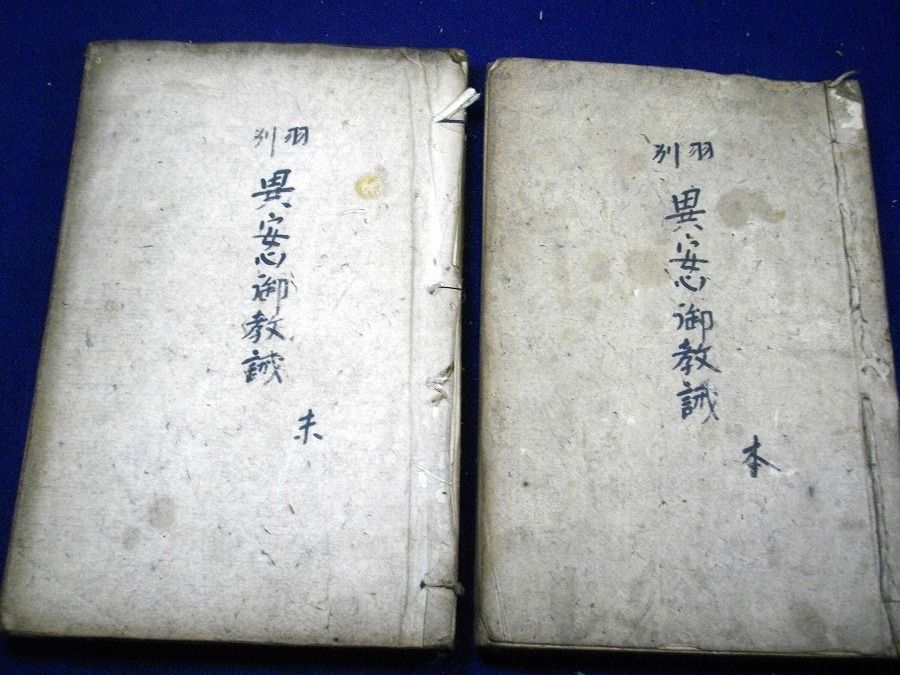 羽刕
異安心御教誡
本
羽刕
異安心御教誡
末